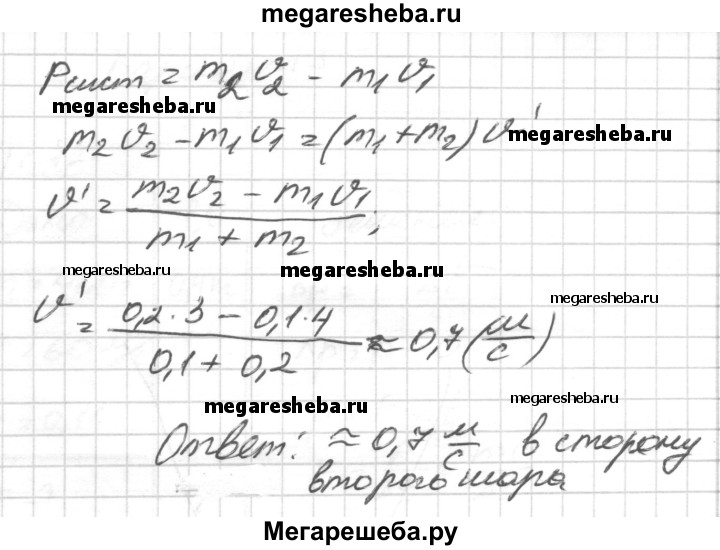 megaresheba.ru
Pсист = m₂v₂ - m₁v₁
megaresheba.ru
m₂v₂ - m₁v₁ = (m₁ + m₂) v'
megaresheba.ru
v' = (m₂v₂ - m₁v₁) / (m₁ + m₂) ;
megaresheba.ru
megaresheba.ru
megaresheba.ru
v' = (0,2 · 3 - 0,1 · 4) / (0,1 + 0,2) ≈ 0,7 (м/с)
megaresheba.ru
megaresheba.ru
Ответ: ≈ 0,7 м/с в сторону
второго шара
Мегарешеба.ру